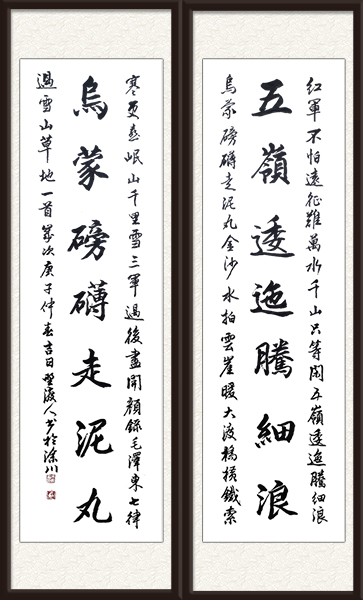 紅軍不怕遠征難萬水千山只等閑五嶺逶迤騰細浪
五嶺逶迤騰細浪
烏蒙磅礴走泥丸金沙水拍雲崖暖大渡橋橫鐵索
寒更喜岷山千里雪三軍過後盡開顏錄毛澤東七律
烏蒙磅礴走泥丸
過雪山草地一首歲次庚子仲春吉日野渡人書於